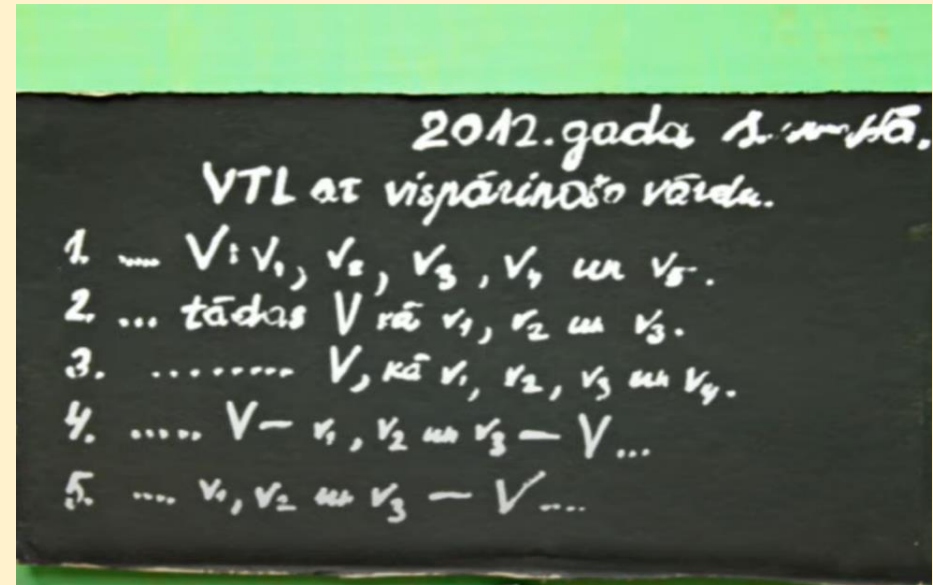 2012.gada
VTL ar vispārinošo vārdu.
1. .... V: v₁, v₂, v₃, v₄ un v₅.
2. ... tādas V kā v₁, v₂ un v₃.
3. ......... V, kā v₁, v₂, v₃ un v₄.
4. ..... V – v₁, v₂ un v₃ – V...
5. .... v₁, v₂ un v₃ – V....